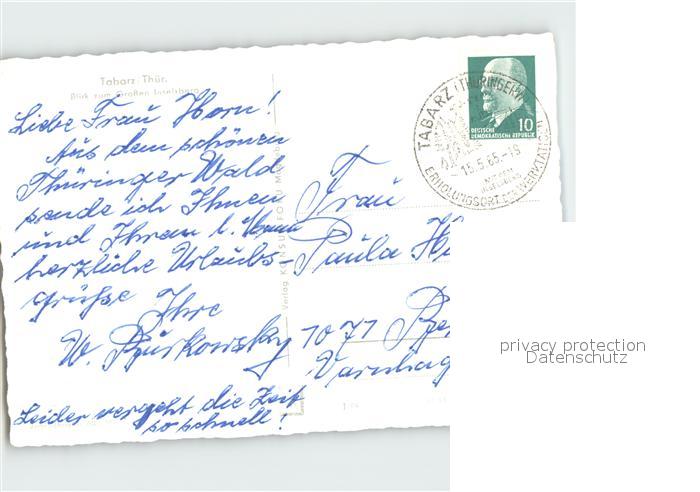 Tabarz Thür.
Blick zum Großen Inselsberg
Liebe Frau Horn!
Aus dem schönen
Thüringer Wald
sende ich Ihnen
und Ihrem l. Mann
herzliche Urlaubs-
grüße Ihre
W. Burkowsky
Leider vergeht die Zeit
so schnell!
Verlag KONSUM
DEUTSCHE
DEMOKRATISCHE REPUBLIK
10
TABARZ (THÜRINGERWA
15.5.65.-19
ERHOLUNGSORT DER WERKTÄTIGEN
Frau
Paula
1071
Varnhag
privacy protection
Datenschutz